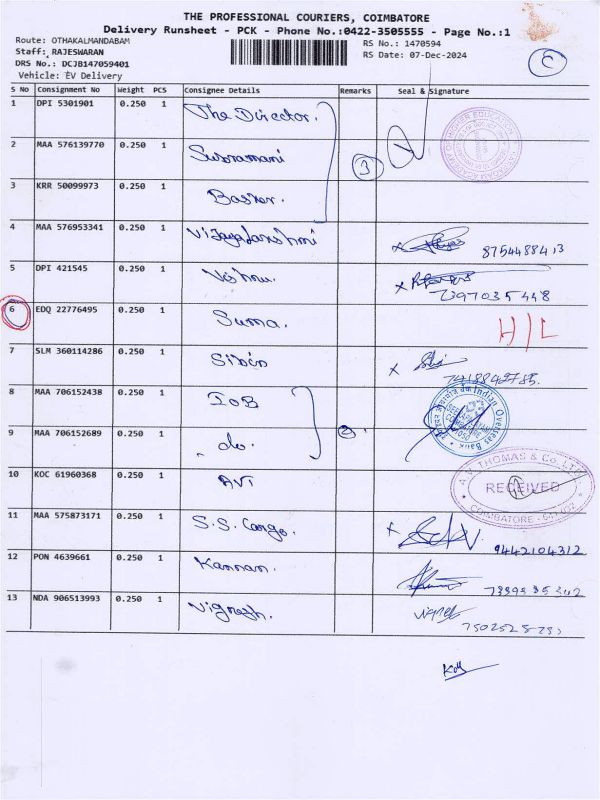 THE PROFESSIONAL COURIERS, COIMBATORE
Delivery Runsheet - PCK - Phone No.:0422-3505555 - Page No.:1
Route: OTHAKALMANDABAM
Staff: RAJESWARAN
RS No.: 1470594
DRS No.: DCJB147059401
RS Date: 07-Dec-2024
Vehicle: EV Delivery
S No Consignment No Weight PCS Consignee Details Remarks Seal & Signature
1 DPI 5301901 0.250 1 The Director.
2 MAA 576139770 0.250 1 Subramani 3
3 KRR 50099973 0.250 1 Basker.
4 MAA 576953341 0.250 1 Vijayalakshmi
5 DPI 421545 0.250 1 Vishnu.
6 EDQ 22776495 0.250 1 Suma. H/L
7 SLM 360114286 0.250 1 Sibin
8 MAA 706152438 0.250 1 IOB
Indian Overseas Bank
9 MAA 706152689 0.250 1 do. 2
10 KOC 61960368 0.250 1 AVT
A.V. THOMAS & Co. LTD
RECEIVED
COIMBATORE
11 MAA 575873171 0.250 1 S.S. Cargo. 9442104312
12 PON 4639661 0.250 1 Kannan.
13 NDA 906513993 0.250 1 Vignesh.